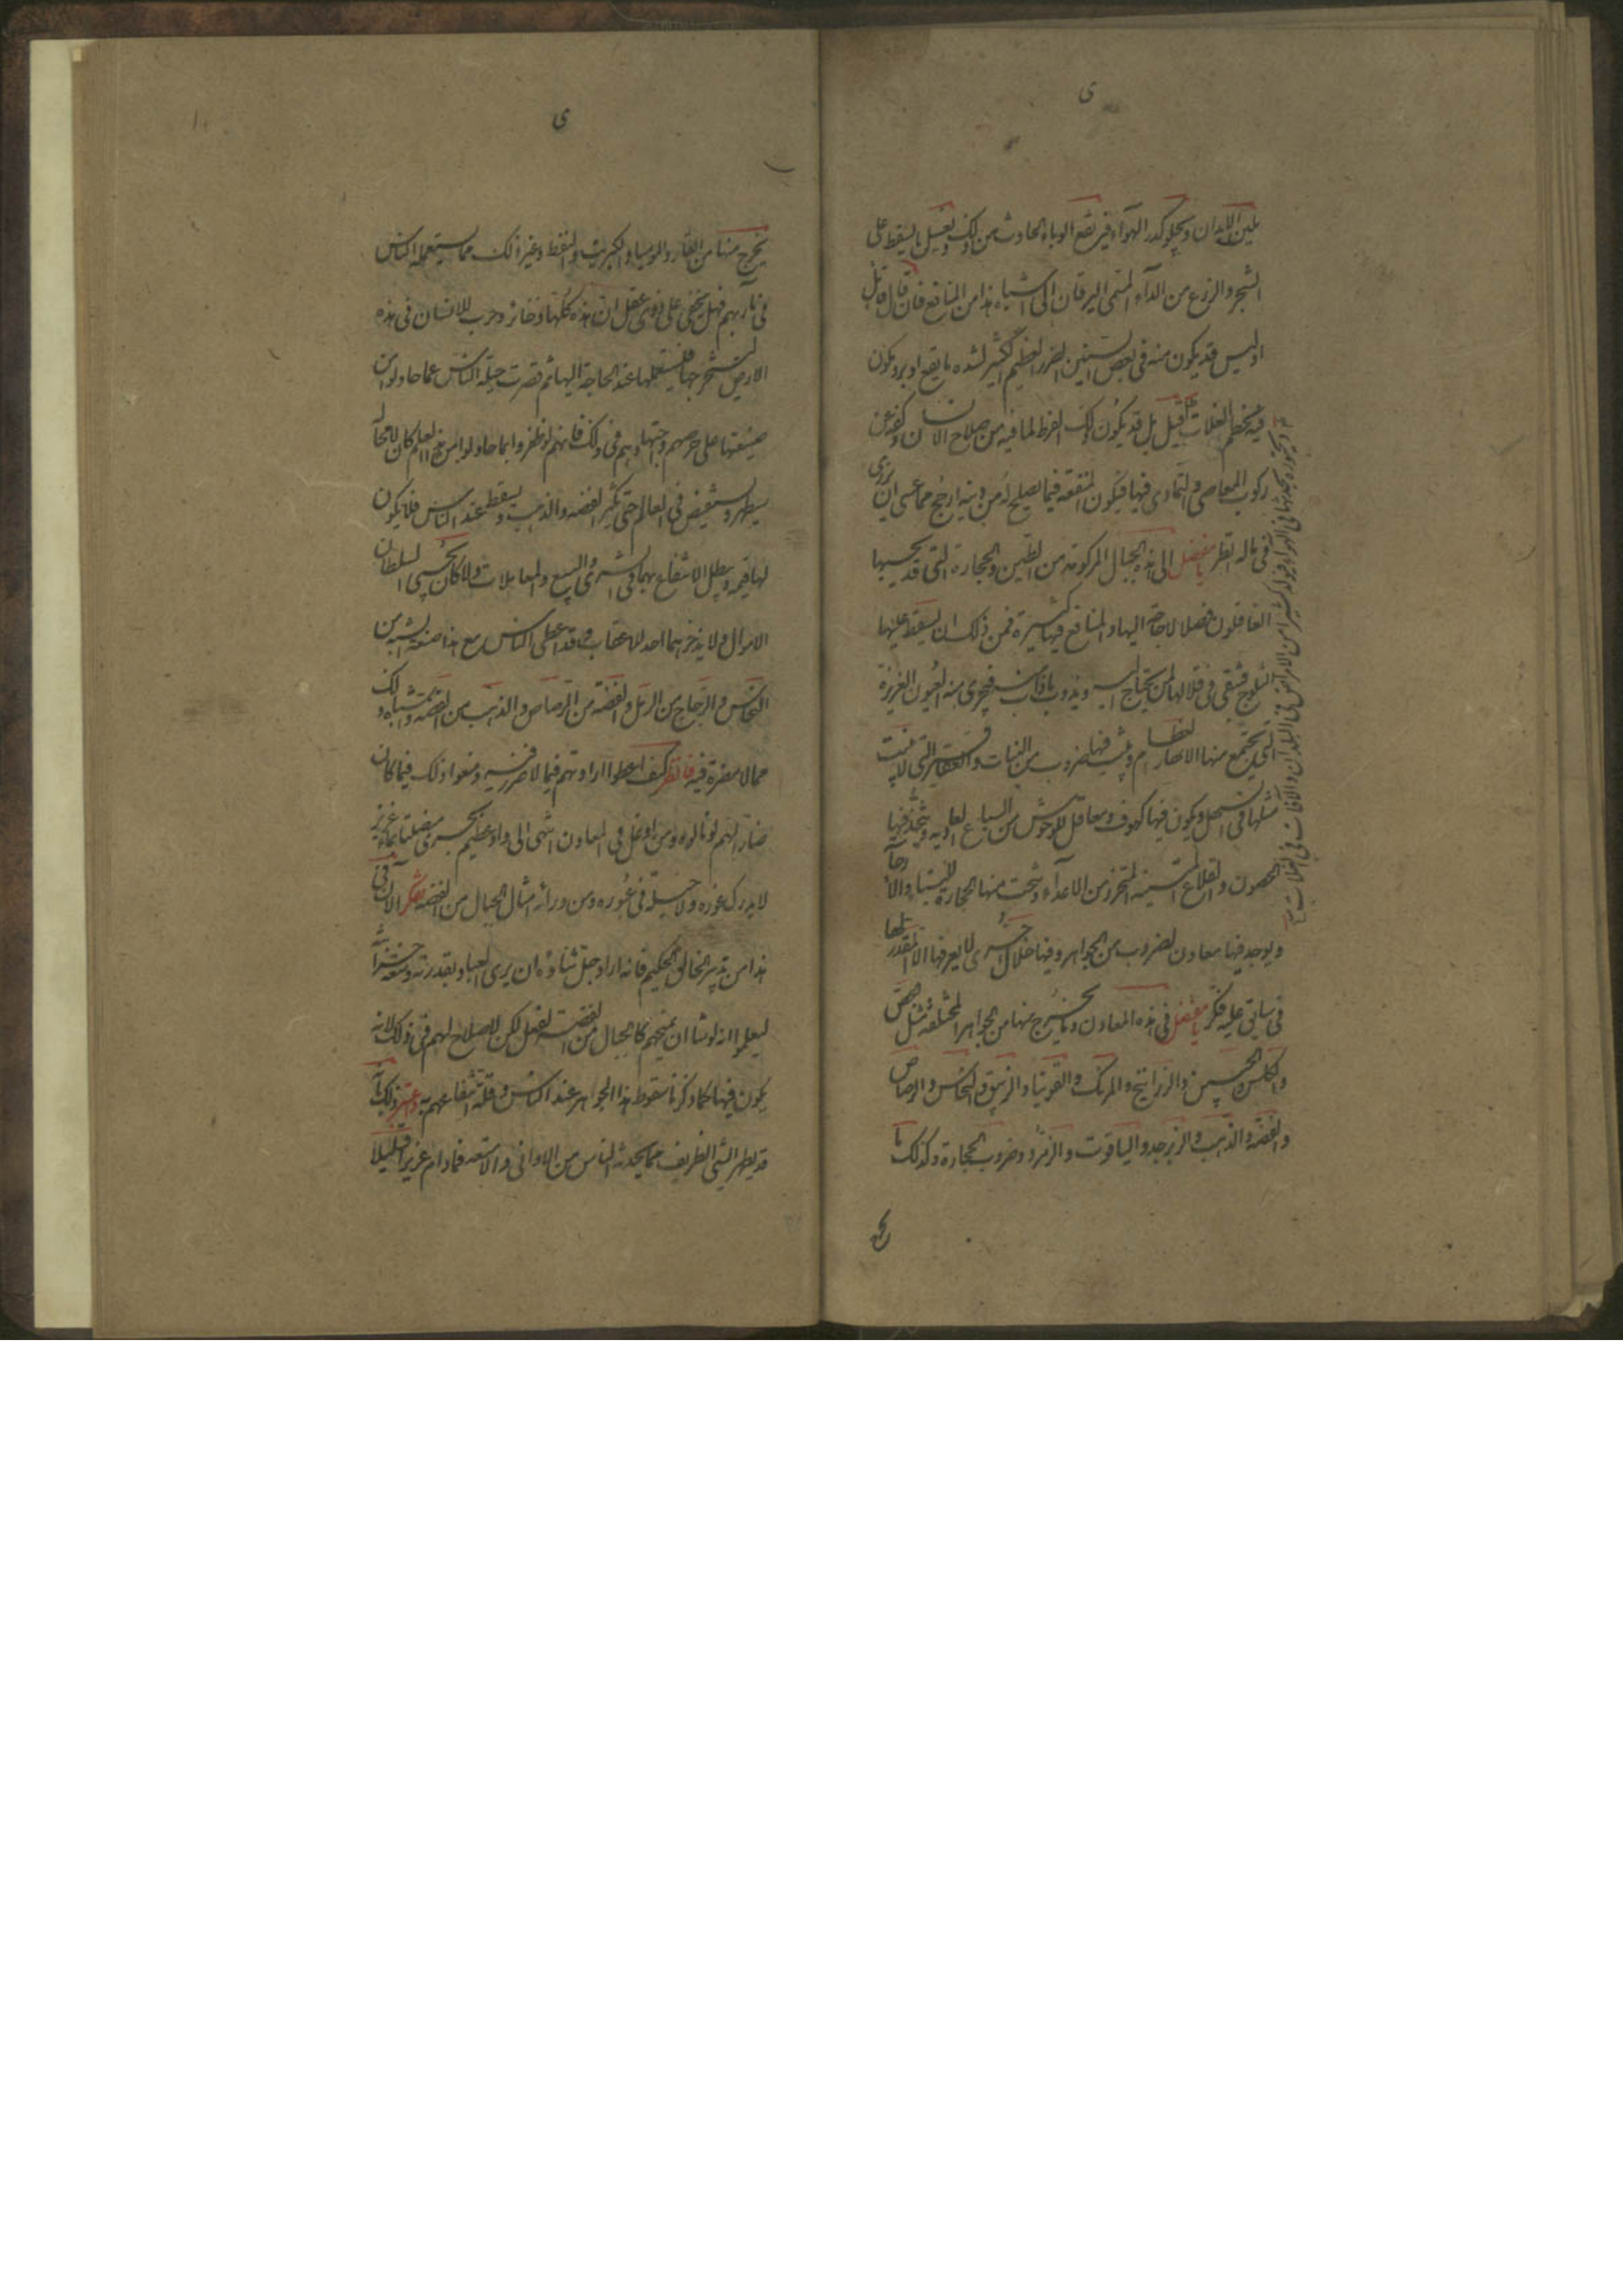 ى
يلين الابدان ويجلو كدر الهوآء فيرتفع الوباء الحادث من ذلك ويغسل ما يسقط على
الشجر والزرع من الدآء المسمى اليرقان الى اشباه هذا من المنافع فان قال قائل
اوليس قد يكون منه فى بعض السنين الضرر العظيم الكثير لشده ما يقع او برد يكون
فيه يحطم الغلات قيل بلى قد يكون ذلك الفرط لما فيه من صلاح الانسان وكفه عن
ركوب المعاصى والتمادى فيها فيكون المنفعه فيما يصلح له من دينه ارجح مما عسى ان يرزى
فى ماله انظر يا مفضل الى هذه الجبال المركومه من الطين والحجارة التى قد يحسبها
الغافلون فضلا لا حاجة اليها والمنافع فيها كثيرة فمن ذلك ان يسقط عليها
الثلوج فتبقى فى قلالها لمن يحتاج اليه ويذوب ما ذاب منه فيجرى منه العيون الغزيرة
التى يجتمع منها الانهار العظام وينبت فيها ضروب من النبات والعقاقير التى لا ينبت
مثلها فى السهل ويكون فيها كهوف ومعاقل للوحوش من السباع العاديه ويتخذ فيها
الحصون والقلاع المنيعه للتحرز من الاعدآء وينحت منها الحجارة للبنآء والارحآء
ويوجد فيها معادن لضروب من الجواهر وفيها خلال اخرى لا يعرفها الا المقدر لها
فى سابق علمه فكر يا مفضل فى هذه المعادن وما يخرج منها من الجواهر المختلفه مثل الجص
والكلس والجبسين والزرانيخ والمرتك والقونيا والزيبق والنحاس والرصاص
والفضه والذهب والزبرجد والياقوت والزمرد وضروب الحجارة وكذلك ما
يخرج
ويبخره فى الهواء فيولد كثيرا من الامراض فى الابدان والافات فى الغلات
ى
يخرج منها من القار والموميا والكبريت والنفط وغير ذلك مما يستعمله الناس
فى مآربهم فهل يخفى على ذى عقل ان هذه كلها ذخائر ذخرت للانسان فى هذه
الارض ليستخرجها فيستعملها عند الحاجة اليها ثم قصرت حيلة الناس عما حاولوا من
صنعتها على حرصهم واجتهادهم فى ذلك فانهم لو ظفروا بما حاولوا من هذا العلم كان لا محالة
سيظهر ويستفيض فى العالم حتى يكثر الفضه والذهب ويسقط عند الناس فلا يكون
لها قيمه ويبطل الانتفاع بهما فى الشرى والبيع والمعاملات ولا كان يجبى السلطان
الاموال ولا يذخرهما احد للاعقاب وقد اعطى الناس مع هذا صنعة الشبه من
النحاس والزجاج من الرمل والفضه من الرصاص والذهب من الفضه واشباه ذلك
مما لا مضرة فيه فانظر كيف اعطوا ارادتهم فيما لا ضرر فيه ومنعوا ذلك فيما كان
ضارا لهم لو نالوه ومن اوغل فى المعادن انتهى الى واد عظيم يجرى منصلتا بماء غزير
لا يدرك غوره ولا حيلة فى عبوره ومن ورائه امثال الجبال من الفضه تفكر الآن فى
هذا من تدبير الخالق الحكيم فانه اراد جل ثناؤه ان يرى العباد بقدرته وسعة خزائنه
ليعلموا انه لو شا ان يمنحهم كالجبال من الفضه لفعل لكن لا صلاح لهم فى ذلك لانه
يكون فيها كما ذكرنا سقوط هذا الجواهر عند الناس وقلة انتفاعهم به واعتبر ذلك بانه
قد يظهر الشى الظريف مما يحدثه الناس من الاوانى والامتعه فما دام عزيزا قليلا